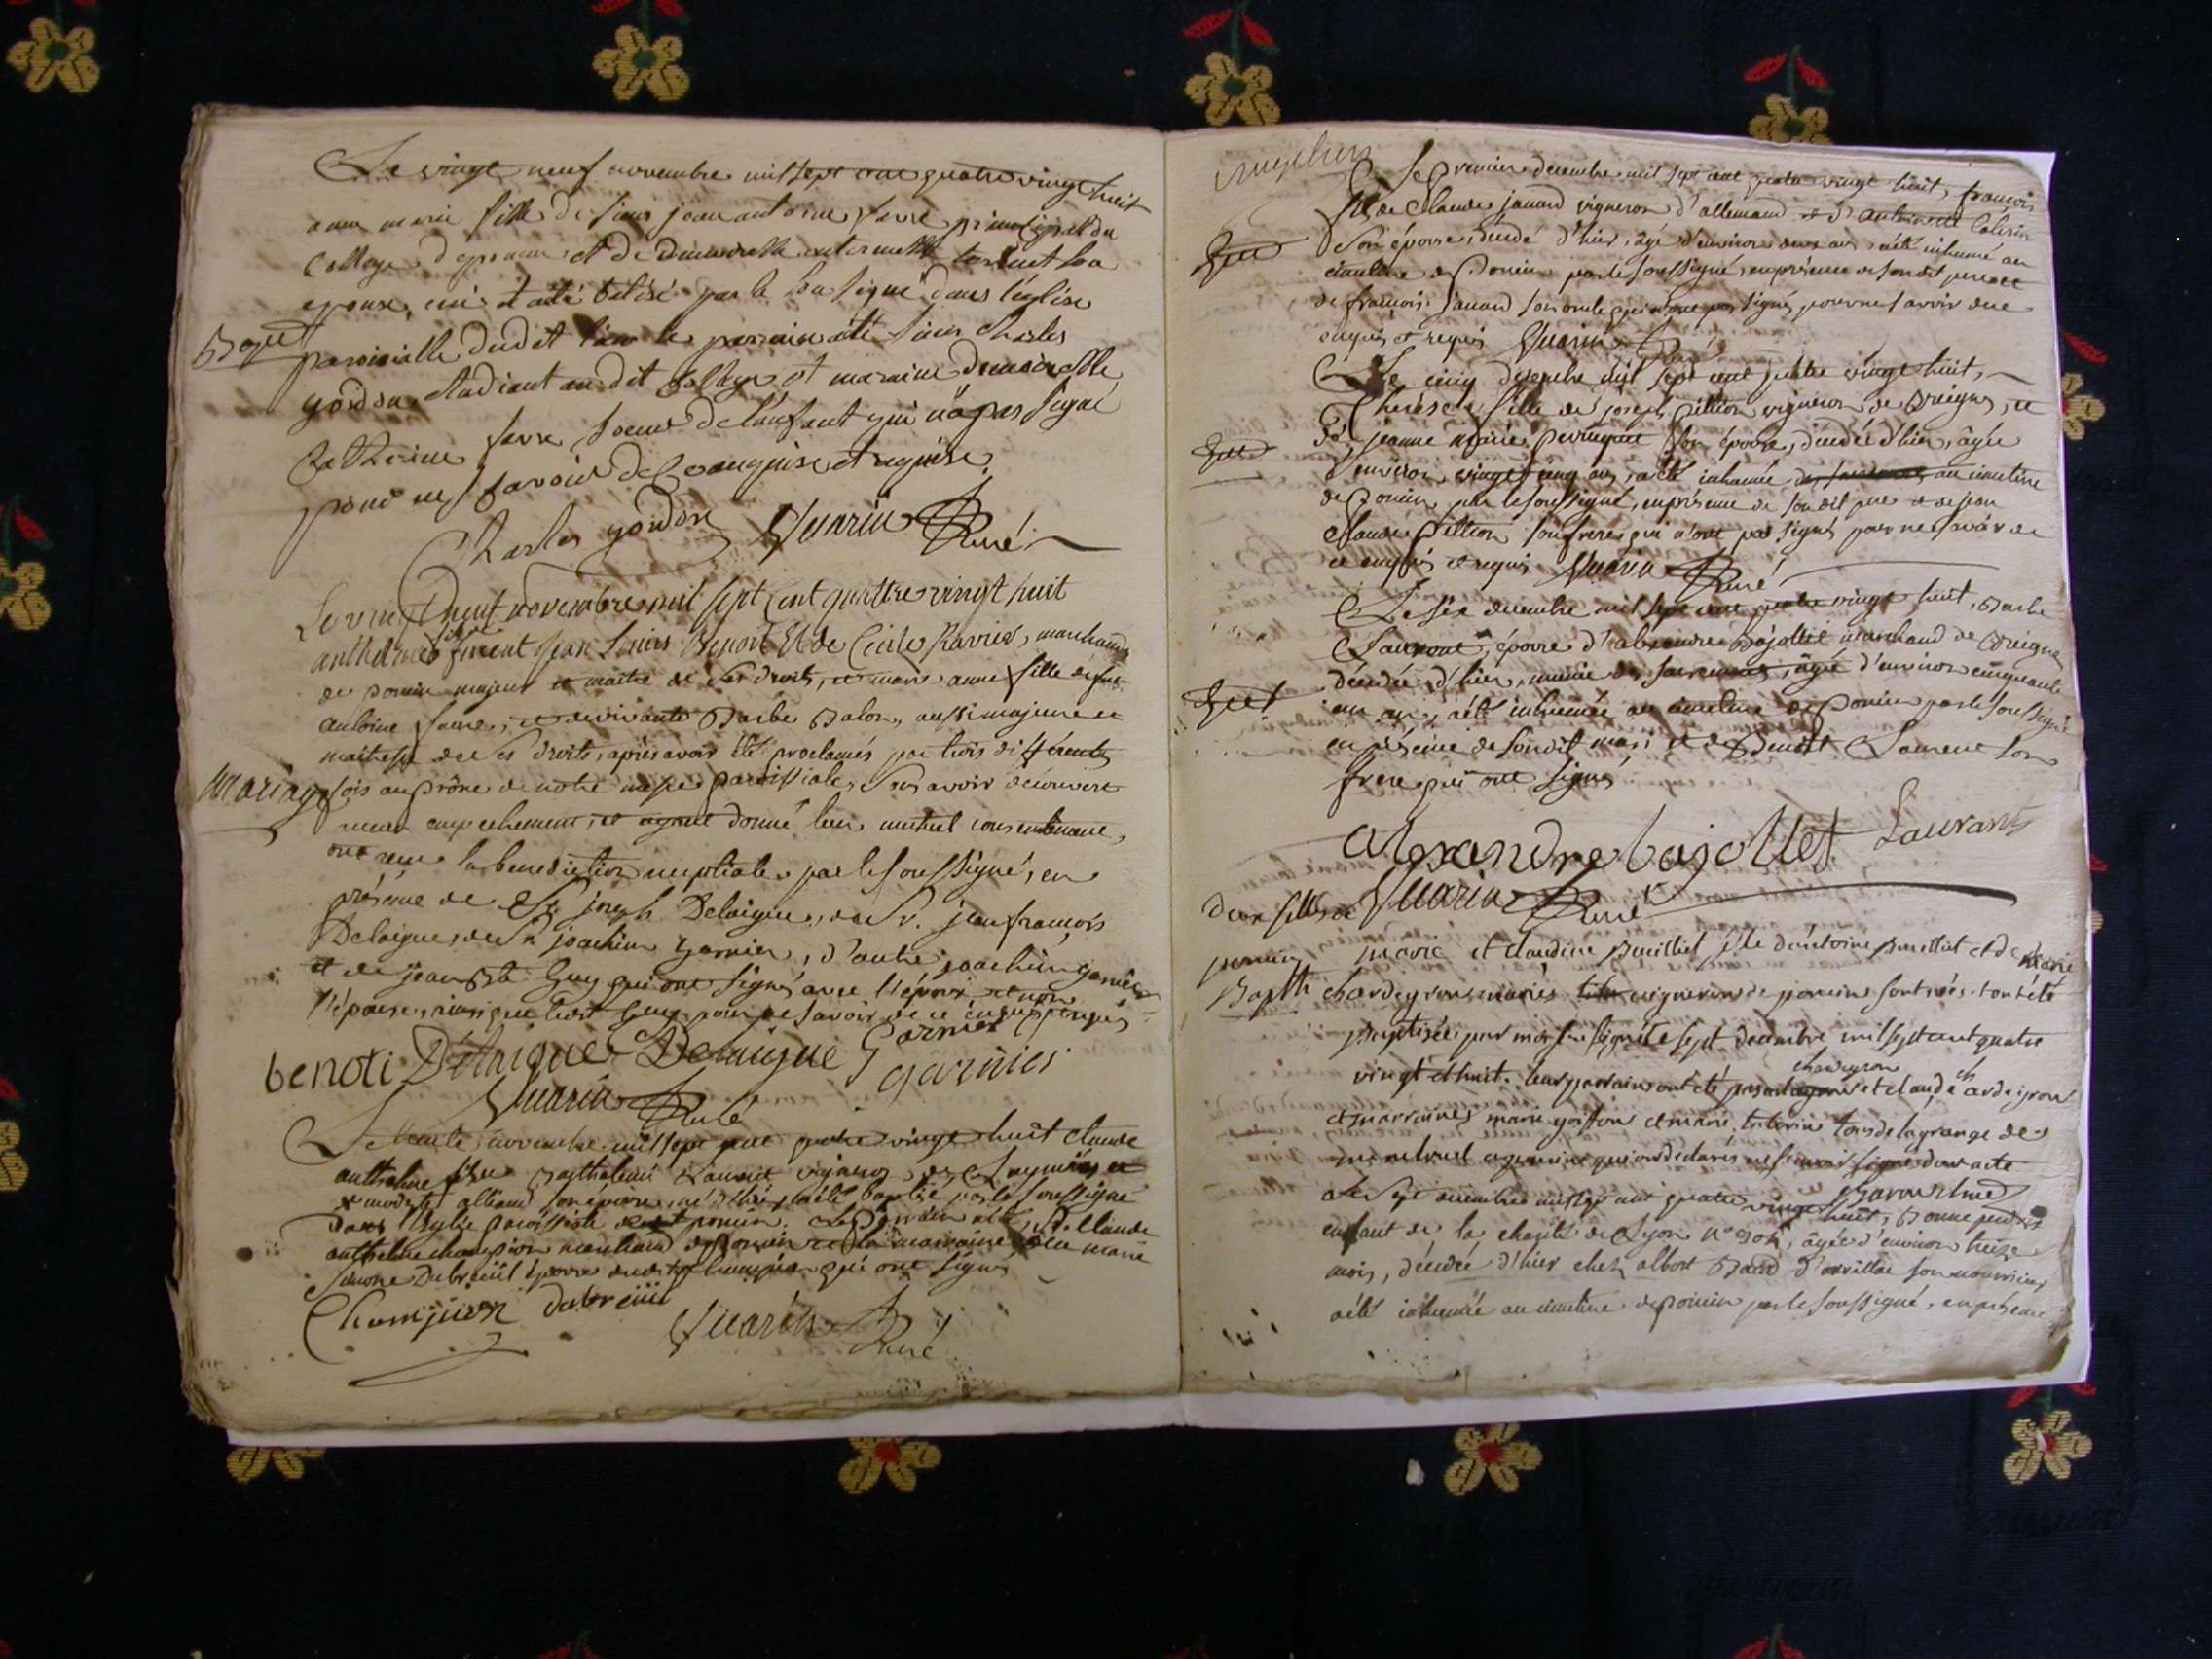 Le vingt neuf novembre mil sept cent quatre vingt huit
anne marie fille de sieur jean antoine favre principal du
College et de Demoiselle
epouse, née et a été batisé par le sousigné dans l'église
Bapt
paroissialle dudit lieu le parrain a été sieur Charles
gordon etudiant au dit College et maraine Demoiselle
Catherine favre soeur de l'enfant qui n'a pas signé
pour ne savoir de ce enquise et requise
Charles gordon Guarin Curé
Le vingt neuf novembre mil sept cent quattre vingt huit
anthelme fils de feu Jean Louis Benoit et de Cécile Ravier, marchand
de poncin majeur et maitre de ses droits, et marie anne fille de feu
antoine favre, et de vivante Barbe Balon, aussi majeure et
maitresse de ses droits, après avoir été proclamés par trois différentes
Mariage
fois au prône de notre messe paroissiale, sans avoir découvert
aucun empechement, et ayant donné leur mutuel consentement,
ont reçu la benediction nuptiale par le soussigné, en
présence de Sr joseph Delaigue, de Sr. jean françois
Delaigue, de Sr joachim Garnier, d'autre joachim garnier
et de jean Bte Guy qui ont signés avec l'époux et non
l'épouse, ainsi que ledit Guy pour ne savoir de ce enquis requis
benoti Delaigue Delaigue Garnier
garnier
Guarin Curé
Le trente novembre mil sept cent quatre vingt huit claude
anthelme fils de Barthelemi Laurent vigneron de et
de modeste alliaud son épouse, né d'hier, a été baptisé par le soussigné
dans l'Eglise paroissiale de poncin. Le Parrain a été Sr. Claude
anthelme champion marchand de Poncin et la marraine dlle marie
simone Dubreüil épouse dudit Sr champion qui ont signés
Champion dubreüil
Guarin Curé
Le premier décembre mil sept cent quatre vingt huit, françois
fils de Claude janard vigneron d'allemand et d'antoinette
son épouse, décédé d'hier, âgé d'environ deux ans, a été inhumé au
cimetière de Poncin par le soussigné, en présence de sondit pere et
de françois janard son oncle qui n'ont pas signés pour ne savoir de ce
enquis et requis Guarin Curé
Le cinq decembre mil sept cent quatre vingt huit,
Thérèse fille de joseph pillion vigneron de Breignes, et
de jeanne marie son épouse, décédée d'hier, âgée
d'environ vingt cinq ans, a été inhumée au cimetière
de Poncin par le soussigné, en présence de son dit pere et de jean
Claude Pillion son frere qui n'ont pas signés pour ne savoir de
ce enquis et requis Guarin Curé
Le six decembre mil sept cent quatre vingt huit, Barbe
Laurent, épouse d'alexandre Bajollet marchand de Breignes
décédée d'hier, munie des sacrements, âgée d'environ cinquante
un an, a été inhumée au cimetière de Poncin par le soussigné
en présence de sondit mari et de Benoit Laurent son
frere qui ont signés
alexandre bajollet Laurant
Guarin Curé
Deux filles de
poncin
Bapth
marie et claudine Buillet fille d'antoine Buillet et de marie
chardeyron mariés vignerons de poncin sont nées et ont été
baptisée par moi soussigné le sept decembre mil sept cent quatre
chardeyron
vingt et huit. leur parrain ont été et claude chardeyron
et marraines marie goiffon et marie tous de la grange de
et poncin qui ont declarés ne savoir signer dont acte
Le sept decembre mil sept cent quatre vingt huit, Bonne
enfant de la charité de Lyon âgée d'environ treize
mois, décédée d'hier chez albert son nourricier,
a été inhumée au cimetière de Poncin par le soussigné, en présence